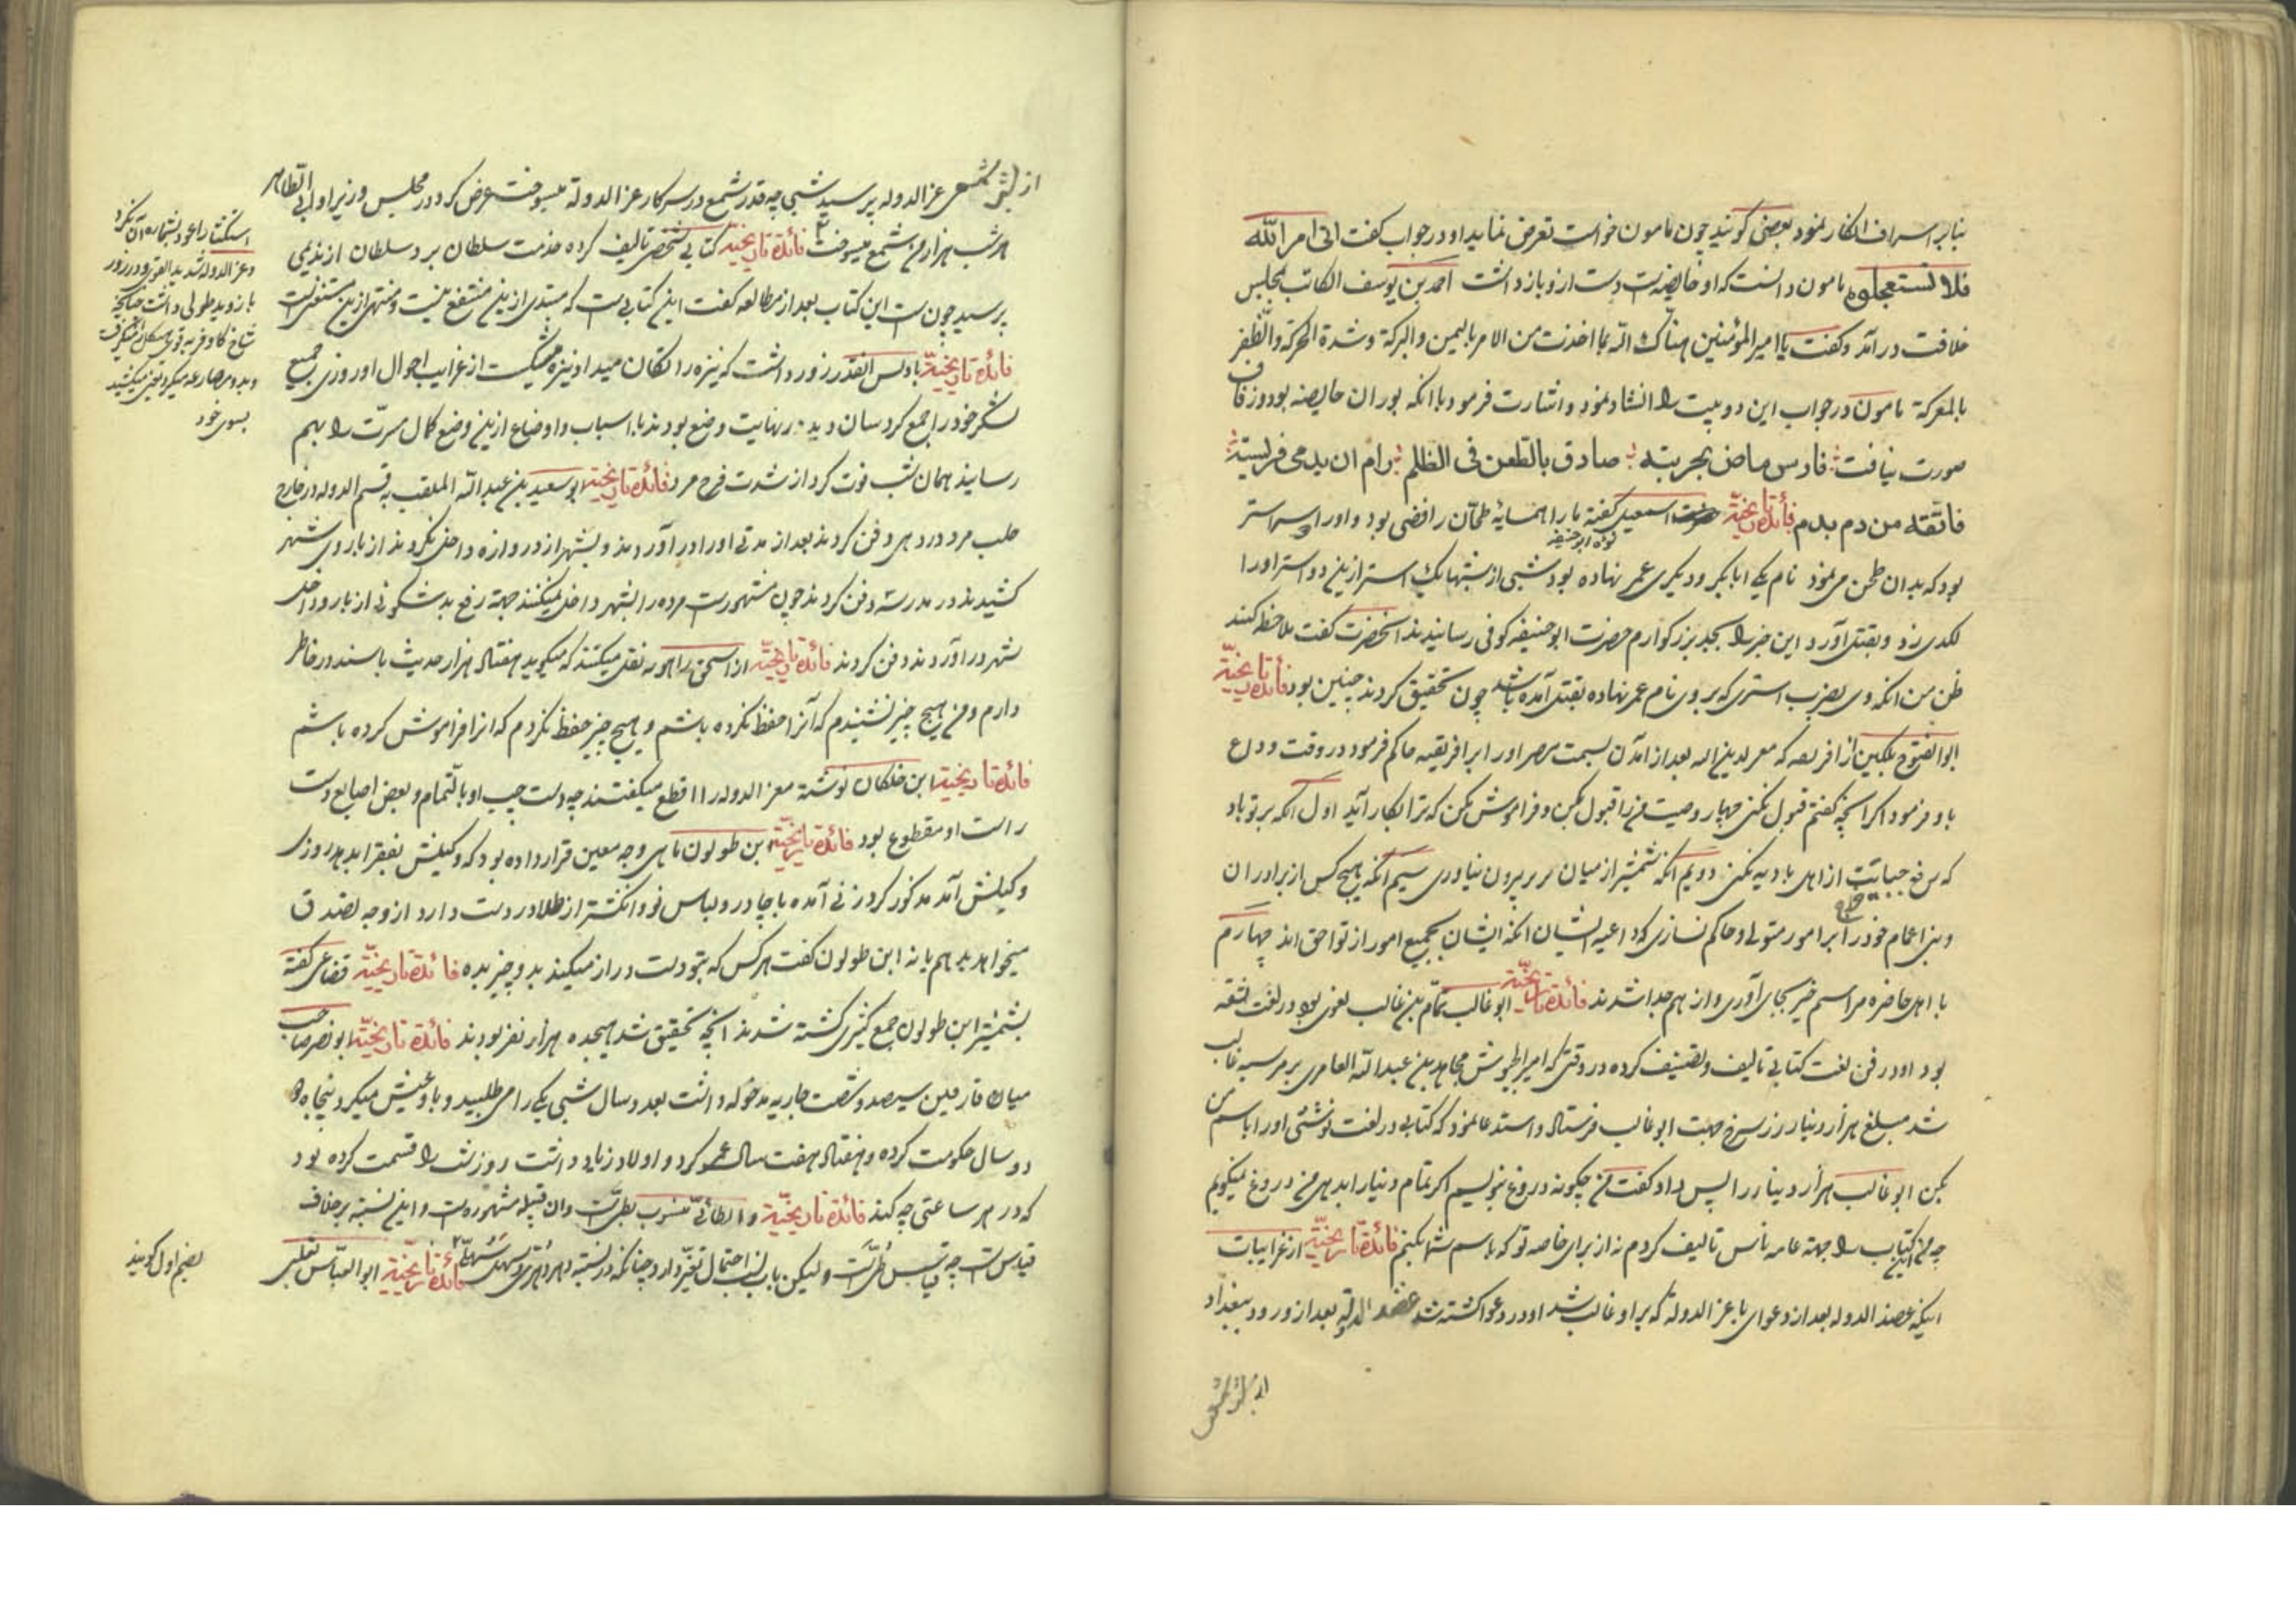 بنابر اسراف انکار نمود بعضی گویند چون مامون خواست تعرض نماید او در جواب گفت اتی امر الله
فلا تستعجلوه مامون دانست که او حایضه است دست ازو باز داشت احمد بن یوسف الکاتب بمجلس
خلافت درآمد و گفت یا امیر المؤمنین هناک الله بما اخذت من الامر بالیمن والبرکة وشدة الحرکة والظفر
بالمعرکة مامون در جواب این دو بیت را انشاد نمود و اشارت فرمود بانکه بوران حایضه بود و زفاف
صورت نیافت فارس ماض بحربته صادق بالطعن فی الظلم رام ان یدمی فریسته
فاتقته من دم بدم فائدة تاریخیة اسمعیل گفته ما را همسایهٔ طحّان رافضی بود و او را دو استر
نوه ابوحنیفه
بود که بدان طحن می نمود نام یکی ابابکر و دیگری عمر نهاده بود شبی از شبها یک استر ازین دو استر او را
لکدی زد و بقتل آورد این خبر را بجد بزرگوارم حضرت ابوحنیفه کوفی رسانیدند انحضرت گفت ملاحظه کنید
ظن من انکه وی بضرب استری که بر وی نام عمر نهاده بقتل آمده باشد چون تحقیق کردند چنین بود فائدة تاریخیة
ابوالفتوح بلکین از افریقیه که معز لدین اله بعد از آمدن بسمت مصر او را بر افریقیه حاکم فرمود در وقت وداع
باو فرمود اکر انچه گفتم قبول نمکنی چهار وصیت من را قبول بکن و فراموش مکن که ترا بکار آید اول آنکه بر تو باد
که رفع جبایت از اهل بادیه نمکنی دویم آنکه شمشیر از میان بربر بیرون نیاوری سیم آنکه هیچ کس از برادران
و بنی اعمام خود را بر امور متولی و حاکم نسازی که داعیه ایشان انکه ایشان بجمیع امور از تو احق اند چهارم
با اهل حاضره مراسم خیر بجای آوری و از هم جدا شدند فائدة تاریخیة ابوغالب تمام بن غالب لغوی بود در لغت ثقه
بود او در فن لغت کتابی تالیف و تصنیف کرده در وقتی که امیر الجیوش مجاهد بن عبدالله العامری بر مرسیه غالب
شد مبلغ هزار دینار زر سرخ جهت ابوغالب فرستاد و استدعا نمود که کتابی در لغت نوشتی او را باسم من
بکن ابوغالب هزار دینار را پس داد و گفت من چگونه دروغ بنویسم اکر تمام دنیا را بدهی من دروغ نمیکویم
چه من این کتاب را جهة عامه ناس تالیف کردم نه از برای خاصه تو که باسم شما بکنم فائدة تاریخیة از غرایبات
اینکه عضد الدوله بعد از دعوای با عز الدوله که بر او غالب شد او در دعوا کشته شد عضد الدوله بعد از ورود ببغداد
از بشر شمعی
از بشر شمعی عز الدوله پرسید شبی چه قدر شمع در سرکار عز الدوله میسوخت عرض کرد در مجلس وزیر او ابی الطاهر
هر شب هزار من شمع میسوخت فائدة تاریخیة کتابی شخصی تالیف کرده خدمت سلطان برد سلطان از ندیمی
پرسید چون است این کتاب بعد از مطالعه گفت این کتابی است که مبتدی ازین منتفع نیست و منتهی ازین مستغنی است
فائدة تاریخیة بادیس انقدر زور داشت که نیزه را تکان میداد نیزه میشکست از غرایب احوال او روزی جمیع
لشکر خود را جمع کرد سان دید در نهایت وضع بودند با اسباب و اوضاع ازین وضع کمال مسرّت را بهم
رسانید همان شب فوت کرد از شدت فرح مرد فائدة تاریخیة ابوسعید بن عبدالله الملقب به قسیم الدوله در خارج
حلب مرد در دهی دفن کردند بعد از مدتی او را در آوردند و بشهر از دروازه داخل نکردند از باروی شهر
کشیدند در مدرسه دفن کردند چون مشهور است مرده را بشهر داخل نمیکنند جهة رفع بدشکونی از بارو داخل
شهر در آوردند و دفن کردند فائدة تاریخیة از اسحق راهویه نقل میکنند که میکوید هفتاد هزار حدیث با سند در خاطر
دارم و من هیچ چیز نشنیدم که آنرا حفظ نکرده باشم و هیچ چیز حفظ نکردم که انرا فراموش کرده باشم
فائدة تاریخیة ابن خلکان نوشته معز الدوله را اقطع میکفتند چه دست چپ او بالتمام و بعض اصابع دست
راست او مقطوع بود فائدة تاریخیة ابن طولون ماهی وجه معین قرار داده بود که وکیلش بفقرا بدهد روزی
وکیلش آمد مذکور کرد زنی آمده با چادر و لباس نو و انکشتر از طلا در دست دارد از وجه تصدق
میخواهد بدهم یا نه ابن طولون گفت هر کس که بتو دست دراز میکند بدو چیز بده فائدة تاریخیة قضاعی گفته
بشمشیر ابن طولون جمع کثیری کشته شدند انچه تحقیق شد هیجده هزار نفر بودند فائدة تاریخیة ابونصر صاحب
میان فارقین سیصد و شصت جاریه مدخوله داشت بعدد سال شبی یکی را می طلبید و با وی عیش میکرد پنجاه و
دو سال حکومت کرده و هفتاد هفت سال عمر کرد و اولاد زیاد داشت روزش را قسمت کرده بود
که در هر ساعتی چه کند فائدة تاریخیة و الطائی منسوب بطی است و ان قبیله مشهوره است و این نسبة بر خلاف
قیاس است چه قیاس طیّی است ولیکن باب نسب احتمال تغیّر دارد چنانکه در نسبة دهر دُهری و سهل سُهلی فائدة تاریخیة ابوالعباس ثعلبی
استکثار را عود بشماره آن نکرد
و عز الدوله شدید القوة بود در زور
بازو ید طولی داشت چنانچه
شاخ کاو فربه قوی هیکل را میکرفت
و بدو مصارعه میکرد تحتی میکشید
بسوی خود
بضم اول کویند